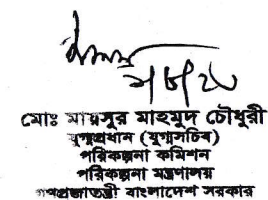 মোঃ মায়সুর মাহমুদ চৌধুরী
যুগ্মপ্রধান (যুগ্মসচিব)
পরিকল্পনা কমিশন
পরিকল্পনা মন্ত্রণালয়
গণপ্রজাতন্ত্রী বাংলাদেশ সরকার